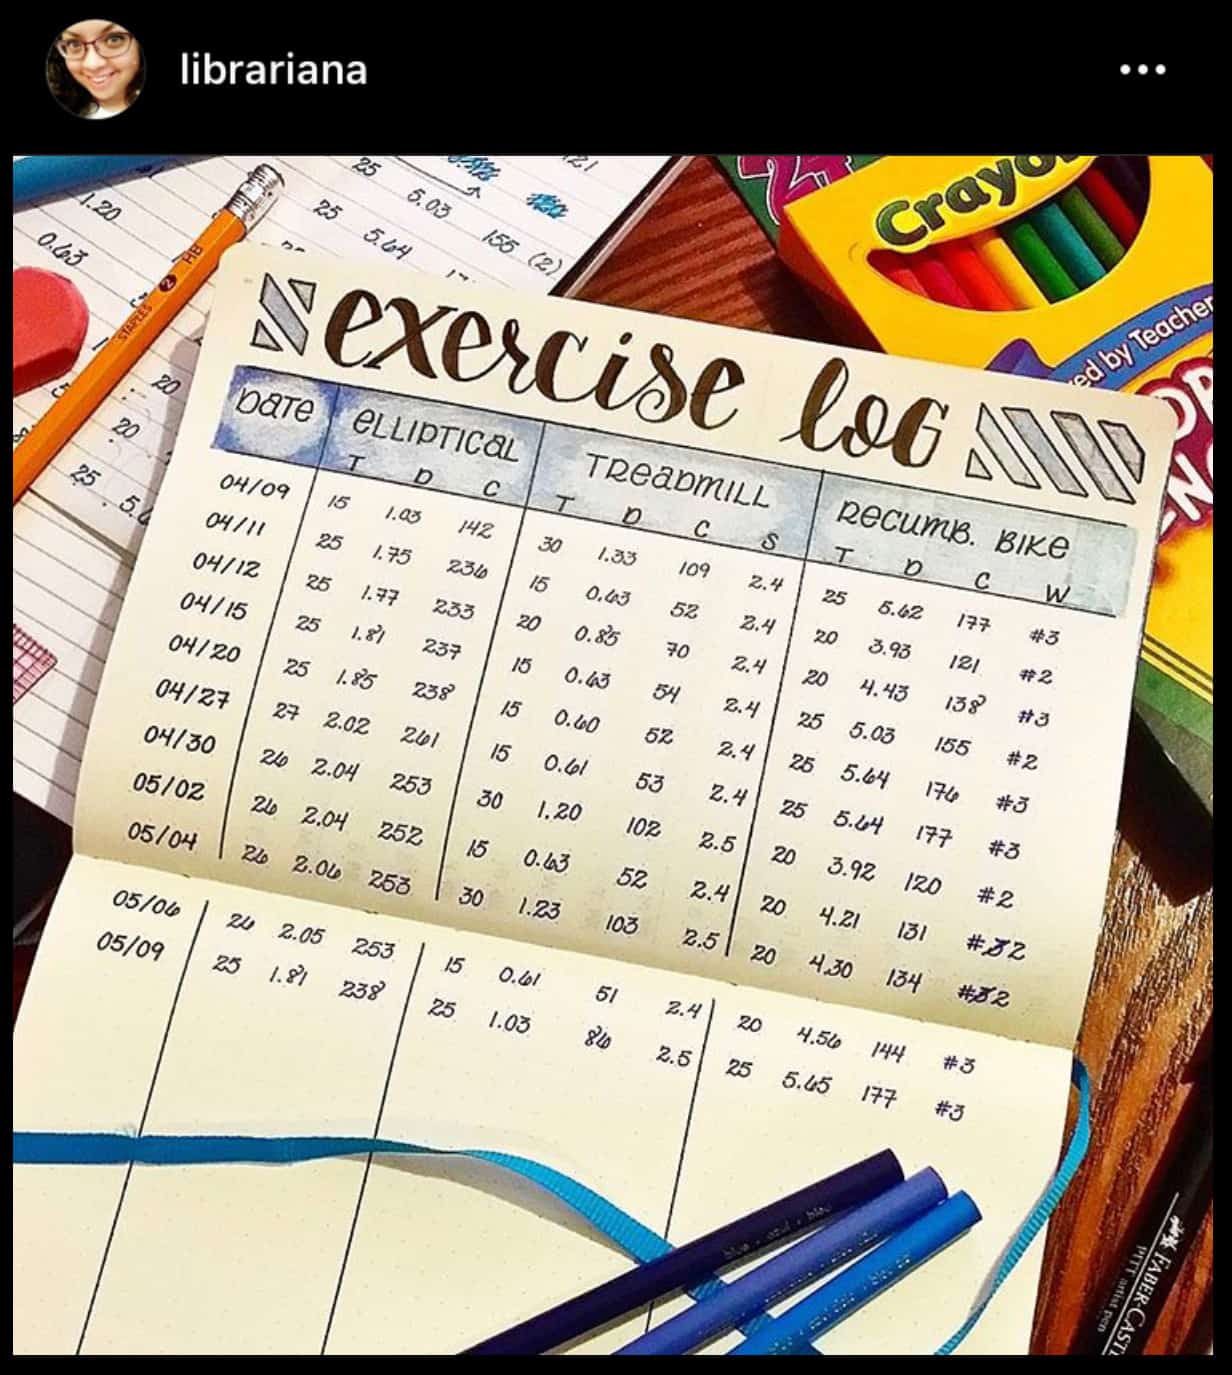 librariana
25 121
1.20 5.03
25 5.64 155 (2)
0.63
STAPLES 2 HB
20
20
25 5.6
24
Crayo
ed by Teacher
exercise log
DATE ELLIPTICAL TREADMILL RECUMB. BIKE
T D C T D C S T D C W
04/09 15 1.03 142 30 1.33 109 2.4 25 5.62 177 #3
04/11 25 1.75 236 15 0.63 52 2.4 20 3.93 121 #2
04/12 25 1.77 233 20 0.85 70 2.4 20 4.43 138 #3
04/15 25 1.81 237 15 0.63 54 2.4 25 5.03 155 #2
04/20 25 1.85 238 15 0.60 52 2.4 25 5.64 176 #3
04/27 27 2.02 261 15 0.61 53 2.4 25 5.64 177 #3
04/30 26 2.04 253 30 1.20 102 2.5 20 3.92 120 #2
05/02 26 2.04 252 15 0.63 52 2.4 20 4.21 131 #2
05/04 26 2.06 253 30 1.23 103 2.5 20 4.30 134 #2
05/06 26 2.05 253 15 0.61 51 2.4 20 4.56 144 #3
05/09 25 1.81 238 25 1.03 86 2.5 25 5.65 177 #3
FABER-CAST
PITT artist pen